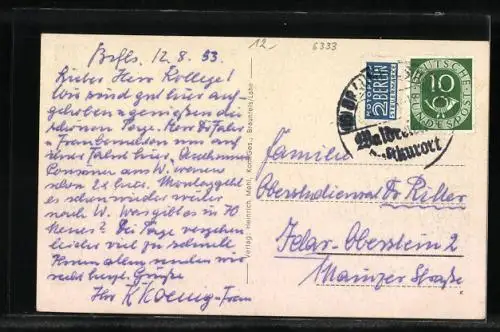 Brfls. 12.8.53
Lieber Herr Kollege!
Wir sind gut hier auf-
gehoben u. genießen die
schönen Tage. Herr
u. Frau uns auf
ihrer Fahrt hier.
aus W. waren
schon 2 x hier. Montag geht
es schon wieder weiter
nach W. Was gibt es in JO
Neues? Die Tage vergehen
leider viel zu schnell.
Ihnen allen senden wir
recht herzl. Grüße
Ihr K Koenig u. Frau
12.-
6333
Verlag Heinrich Mehl, Kom.-Ges., Braunfels/Lahn
NOTOPFER
2 BERLIN
STEUERMARKE
DEUTSCHE
10
BUNDESPOST
Luftkurort
Familie
Oberstudienrat Dr Ritter
Idar-Oberstein 2
Mainzer Straße